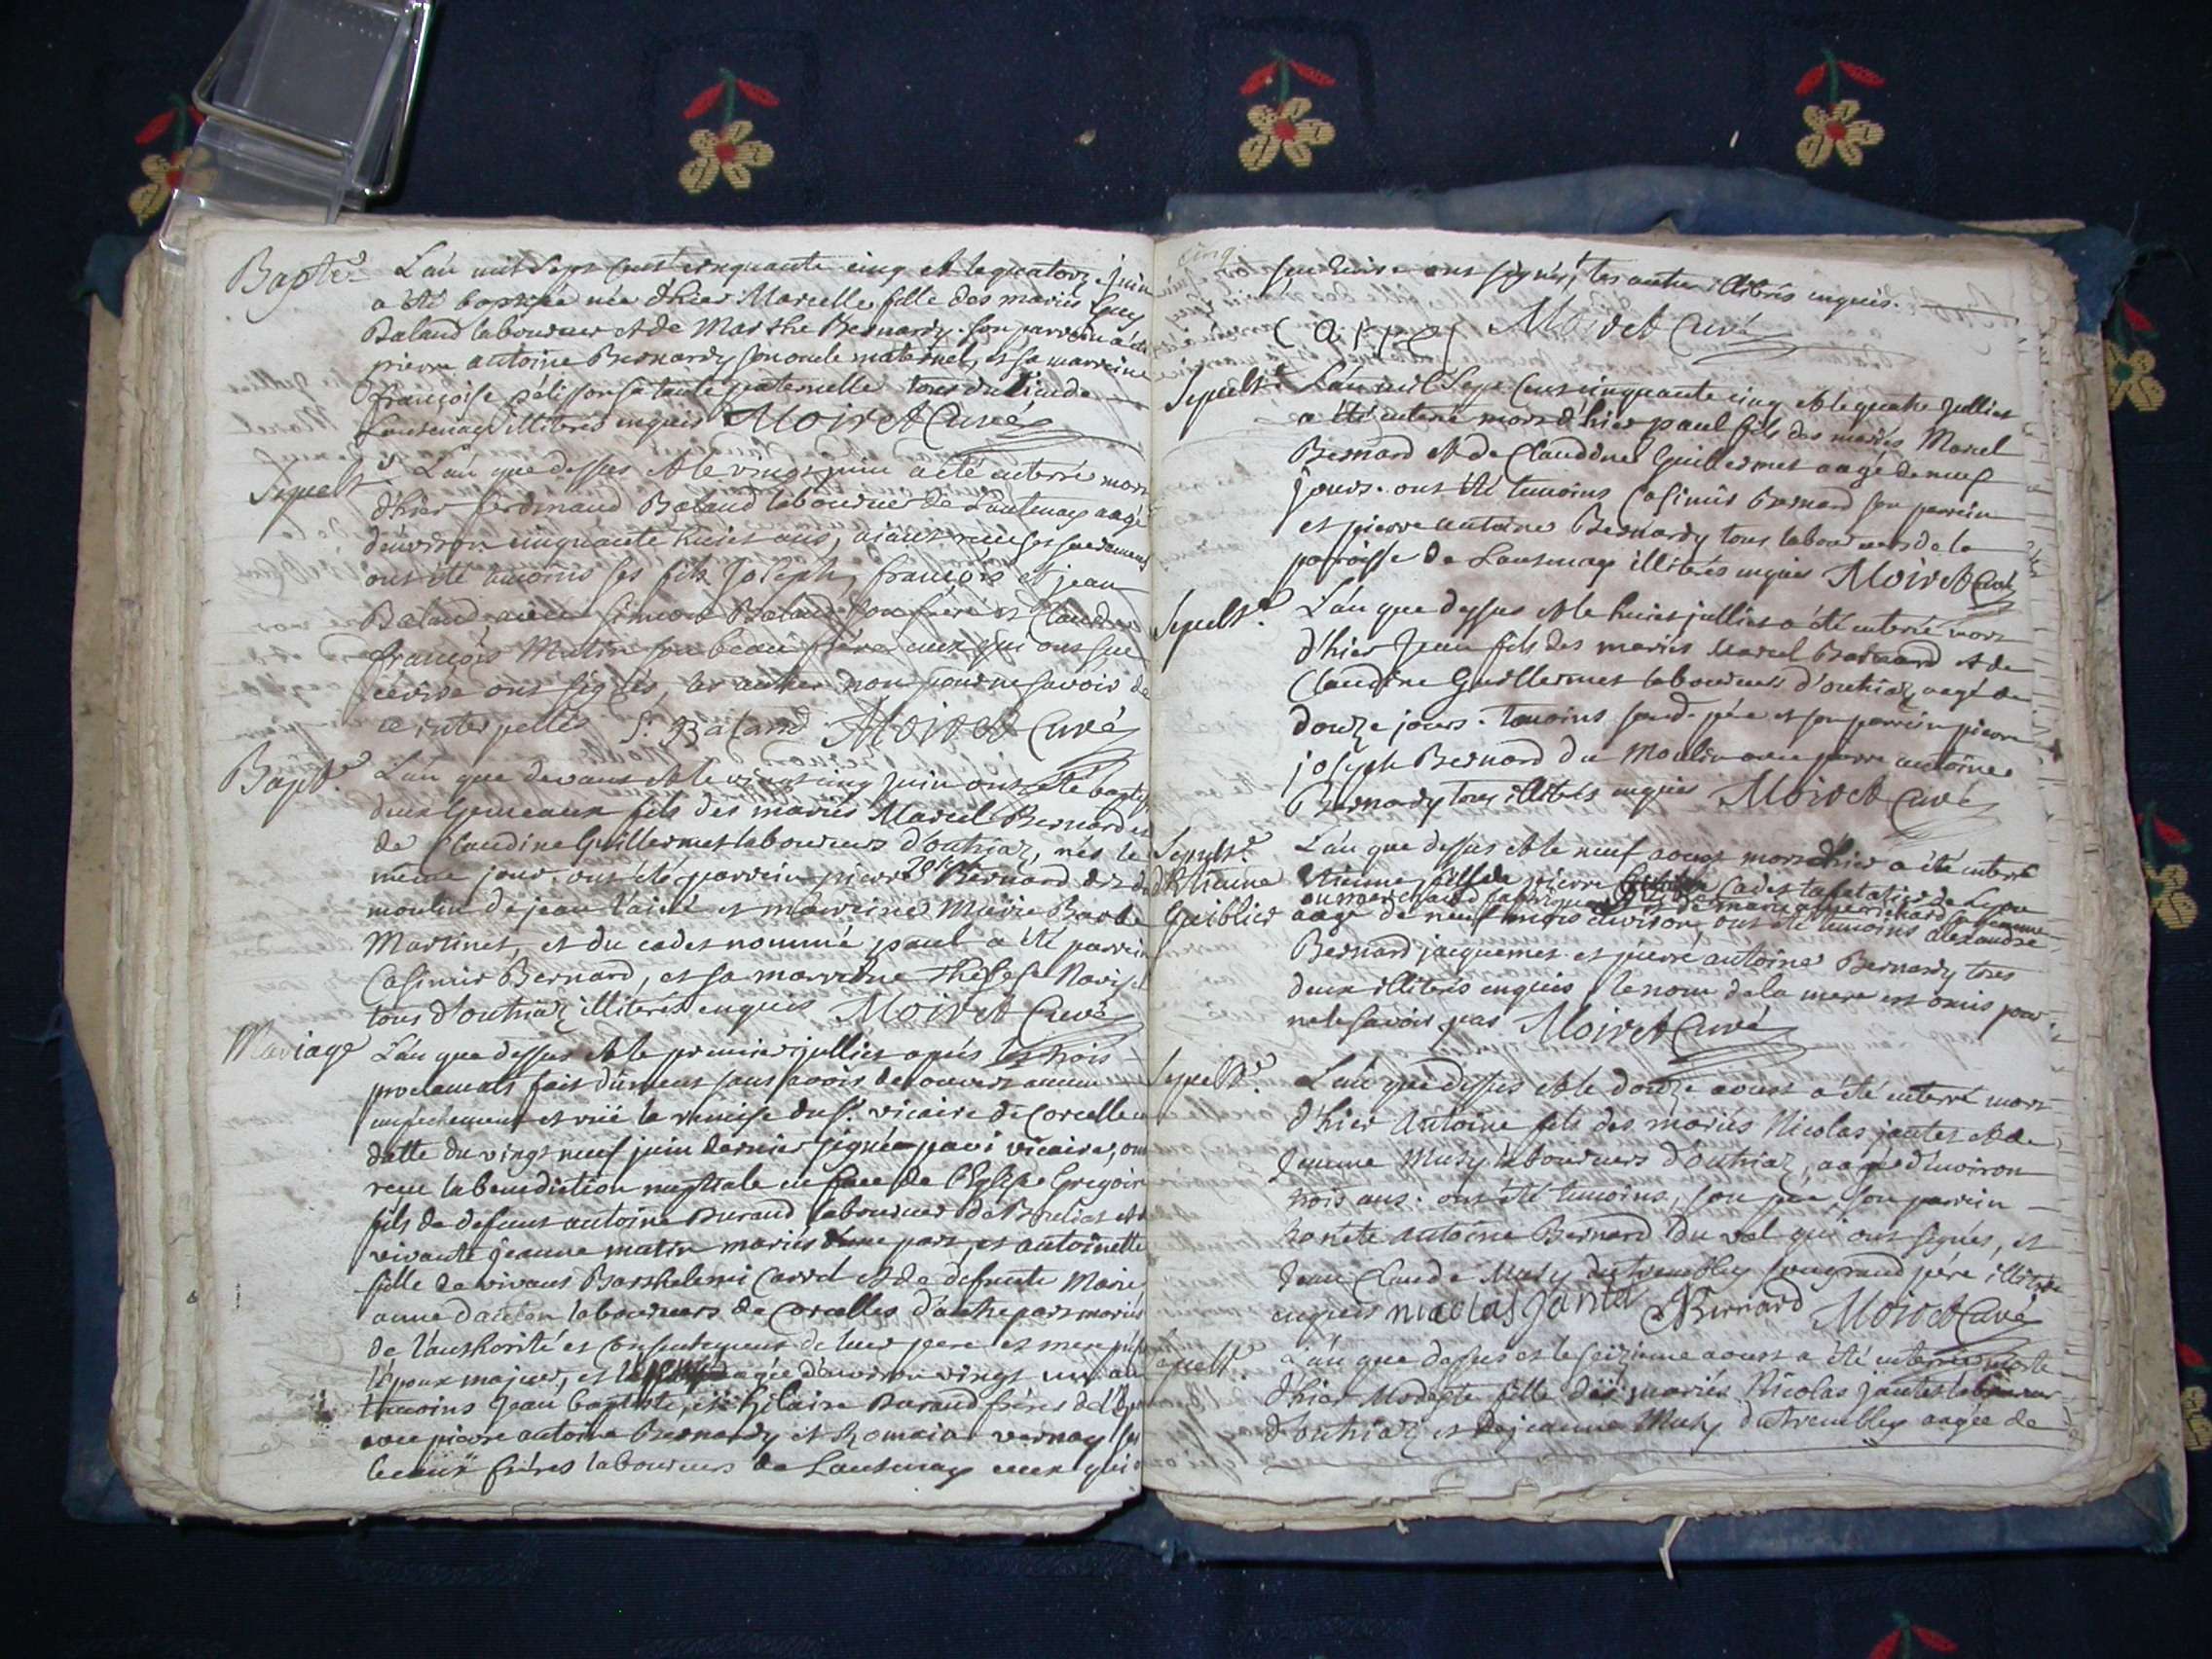 Bapte
L'an mil Sept cens cinquante cinq et le quatorze juin
a été baptisée née d'hier Marcelle fille des mariés Guy
Baland laboureur et de Marthe Bernardy. son parrein a été
pierre antoine Bernardy son oncle maternel, et sa marreine
françoise pélisson sa tante paternelle tous du lieu de
Lantenay illiterés enquis Moiret Curé
Sepultre
L'an que dessus et le vingt juin a été enterré mort
d'hier ferdinand Baland laboureur de Lantenay aagé
d'environ cinquante huict ans, aiant receu ses sacremens
ont été temoins ses fils Joseph, françois et jean
Baland avec Simon Baland son frere et Claude
françois Matin son beau frere ceux qui ont sçeu
écrire ont signés, les autres non pour ne savoir de
ce interpellés S. Baland Moiret Curé
Bapt.e
L'an que devant et le vingt cinq juin ont été baptisé
deux Gemeaux fils des mariés Marcel Bernard et
de Claudine Guillermet laboureurs d'outriaz, nés le
même jour. ont été parrein pierre Jos. Bernard dez du
moulin de jean l'ainé et marreine Marie Barbe
Martinet, et du cadet nommé paul a été parrein
Casimir Bernard, et sa marreine Therese
tous d'outriaz illiterés enquis Moiret Curé
Mariage
L'an que dessus et le premier jullict après les trois
proclamats fais dûment sans avoir decouvert aucun
empechement et veüe la remise du Sr. vicaire de Corcelle en
datte du vingt neuf juin dernier signée pavi vicaire, ont
receu la benediction nuptiale en face de l'Eglise Gregoire
fils de defunt antoine Burand laboureur de et de
vivante jeanne matin mariés d'une part, et antoinette
fille de vivant Barthelemi Carrel et de defunte Marie
anne laboureurs de Corcelles d'autre part mariés
de l'authorité et Consentement de leur pere et mere
l'époux majeur, et aagée d'environ vingt un ans
temoins Jean baptiste, et hilaire Burand frères de l'Epoux
avec pierre antoine Bernardy et Romain vernay
beaux frères laboureurs de Lantenay ceux qui
cinq
sçeu Ecrire ont signés, les autres illiterés enquis.
Moiret Curé
Sepultre
L'an mil Sept Cens cinquante cinq et le quatre jullict
a été enterré mort d'hier paul fils des mariés Marcel
Bernard et de Claudine Guillermet aagé de neuf
jours. ont été temoins Casimir Bernard son parrein
et pierre antoine Bernardy tous laboureurs de la
paroisse de Lantenay illiterés enquis Moiret Curé
Sepultre
L'an que dessus et le huict jullict a été enterré mort
d'hier Jean fils des mariés Marcel Bernard et de
Claudine Guillermet laboureurs d'outriaz, aagé de
douze jours. temoins son d. pere et son parrein pierre
joseph Bernard du Moulin avec pierre antoine
Bernardy tous illiterés enquis Moiret Curé
Sepultre
d'Etienne
Guiblier
L'an que dessus et le neuf aoust mort d'hier a été enterré
Etienne fils de pierre cadet tafetatier de Lyon
ou marchand fabriquant et de marie anne richard sa femme
aagé de neuf mois environ, ont été temoins alexandre
Bernard jacquemet et pierre antoine Bernardy tous
deux illiterés enquis le nom de la mere est omis pour
ne le savoir pas Moiret Curé
Sepultre
L'an que dessus et le douze aoust a été enterré mort
d'hier Antoine fils des mariés Nicolas jantet et de
Jeanne Musy laboureurs d'outriaz, aagé d'environ
trois ans: ont été temoins, son pere, son parrein
honete antoine Bernard du val qui ont signés, et
Jean Claude Musy du trembley son grand pére illiteré
enquis nicolas Janta A Bernard Moiret Curé
Sepult.e
L'an que dessus et le seizieme aoust a été enterrée morte
d'hier Modeste fille des mariés Nicolas jantet laboureur
d'outriaz et de jeanne Musy du trembley aagée de